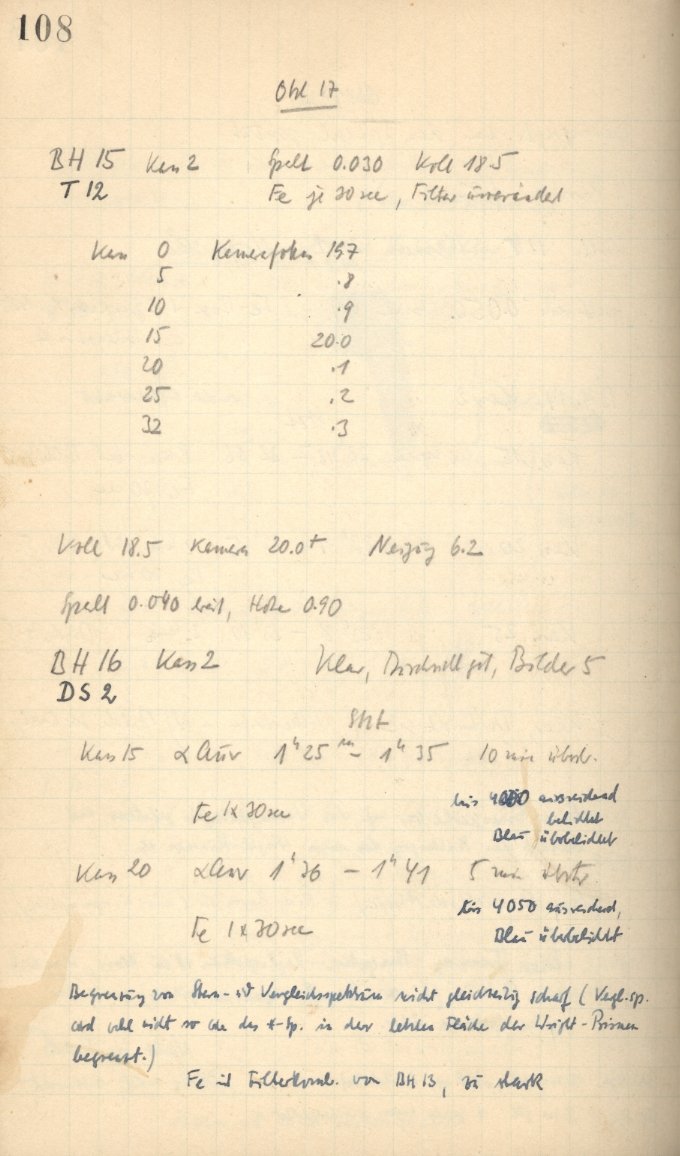 108
Okt 17
BH 15 Kass 2 Spalt 0.030 Koll 18.5
T 12 Fe je 30 sec, Filter unverändert
Kass 0 Kamerafokus 19.7
5 .8
10 .9
15 20.0
20 .1
25 .2
32 .3
Koll 18.5 Kamera 20.0+ Neigung 6.2
Spalt 0.040 breit, Höhe 0.90
BH 16 Kass 2 Klar, Durchsicht gut, Bilder 5
DS 2
Kass 15 α Aur 1ʰ 25ᵐ – 1ʰ 35 10 min
Fe 1x 30 sec bis ausreichend
belichtet
Blau überbelichtet
Kass 20 α Aur 1ʰ 36 – 1ʰ 41 5 min
bis 4050 ausreichend,
Fe 1x 30 sec Blau überbelichtet
Begrenzung von Stern- und Vergleichsspektrum nicht gleichzeitig scharf (Vergl.sp.
wird wohl nicht so wie das *-Sp. in der letzten Fläche der Wright-Prismen
begrenzt.)
Fe mit Filterkomb. von BH 13, zu stark